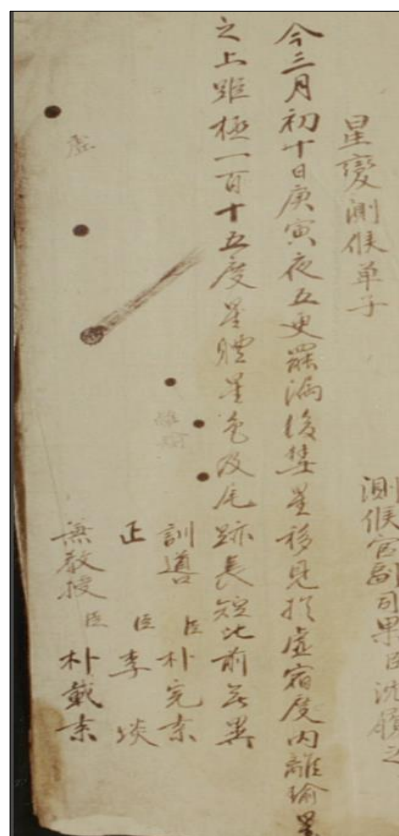 星變測候單子
測候官副司果臣沈
今三月初十日庚寅夜五更罷漏後彗星移見於虛宿度內離瑜星
之上距極一百十五度星體星色及尾跡長短比前無異
訓導 臣 朴完素
正 臣 李埮
兼教授 臣 朴載素
虛
離瑜